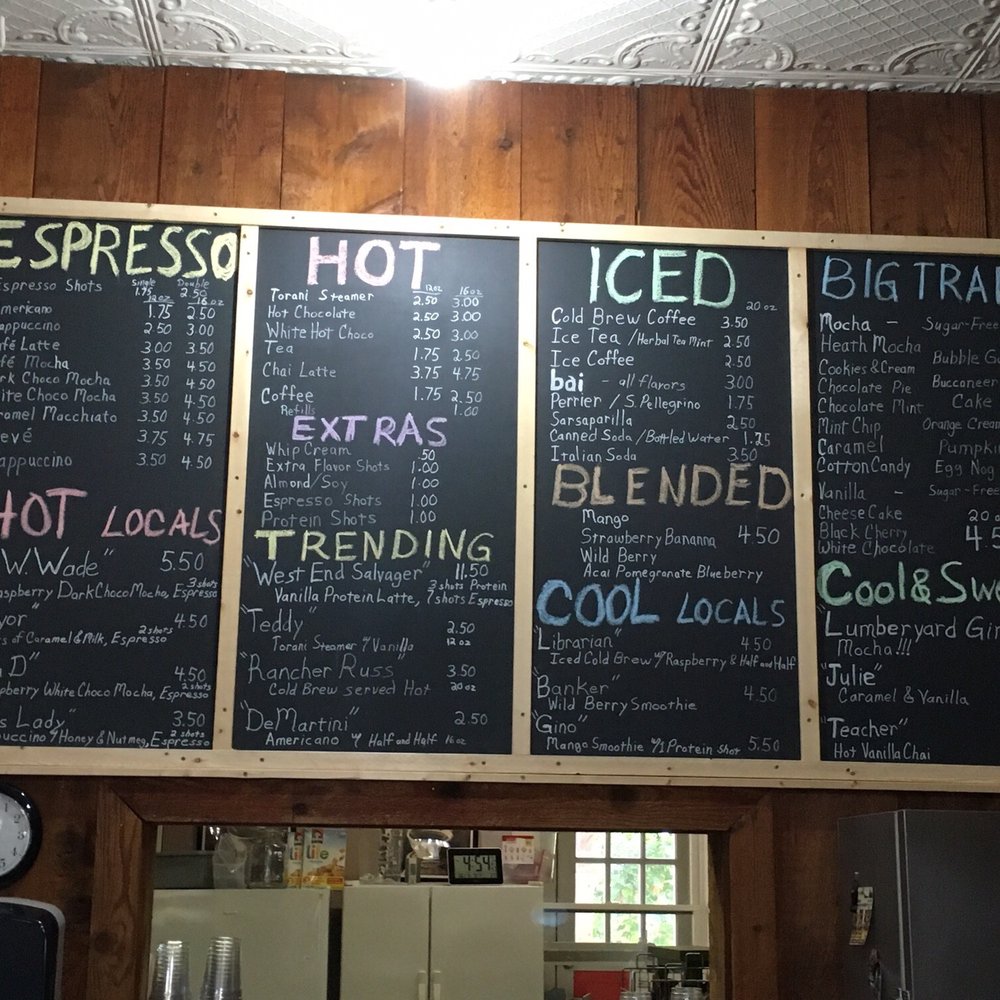 ESPRESSO
Espresso Shots Single 1.75 Double 2.50
12 oz 16 oz
Americano 1.75 2.50
appuccino 2.50 3.00
afé Latte 3.00 3.50
afé Mocha 3.50 4.50
ark Choco Mocha 3.50 4.50
hite Choco Mocha 3.50 4.50
aramel Macchiato 3.50 4.50
evé 3.75 4.75
appuccino 3.50 4.50
HOT LOCALS
W.Wade" 5.50
aspberry Dark Choco Mocha, Espresso 3 shots
yor" 4.50
s of Caramel & Milk, Espresso 2 shots
D" 4.50
pberry White Choco Mocha, Espresso 2 shots
s Lady" 3.50
puccino w/ Honey & Nutmeg, Espresso 2 shots
HOT
12oz 16oz
Torani Steamer 2.50 3.00
Hot Chocolate 2.50 3.00
White Hot Choco 2.50 3.00
Tea 1.75 2.50
Chai Latte 3.75 4.75
Coffee 1.75 2.50
Refills 1.00
EXTRAS
Whip Cream .50
Extra Flavor Shots 1.00
Almond/Soy 1.00
Espresso Shots 1.00
Protein Shots 1.00
TRENDING
"West End Salvager" 11.50
Vanilla Protein Latte, 3 shots Protein 7 shots Espresso
"Teddy" 2.50
Torani Steamer w/ Vanilla 12 oz
"Rancher Russ" 3.50
Cold Brew served Hot 20 oz
"DeMartini" 2.50
Americano w/ Half and Half 16 oz
ICED
20 oz
Cold Brew Coffee 3.50
Ice Tea / Herbal Tea Mint 2.50
Ice Coffee 2.50
bai - all flavors 3.00
Perrier / S. Pellegrino 1.75
Sarsaparilla 2.50
Canned Soda / Bottled Water 1.25
Italian Soda 3.50
BLENDED
Mango
Strawberry Bananna 4.50
Wild Berry
Acai Pomegranate Blueberry
COOL LOCALS
"Librarian" 4.50
Iced Cold Brew w/ Raspberry & Half and Half
"Banker" 4.50
Wild Berry Smoothie
"Gino"
Mango Smoothie w/ 1 Protein Shot 5.50
BIG TRAI
Mocha - Sugar-Free
Heath Mocha
Cookies & Cream Bubble Gu
Chocolate Pie Buccaneer
Chocolate Mint Cake
Mint Chip Orange Cream
Caramel Pumpki
Cotton Candy Egg Nog
Vanilla - Sugar-Free
Cheese Cake 20 o
Black Cherry 4.5
White Chocolate
Cool & Sw
"Lumberyard Gir
Mocha!!!
"Julie"
Caramel & Vanilla
"Teacher"
Hot Vanilla Chai
Life
4:54